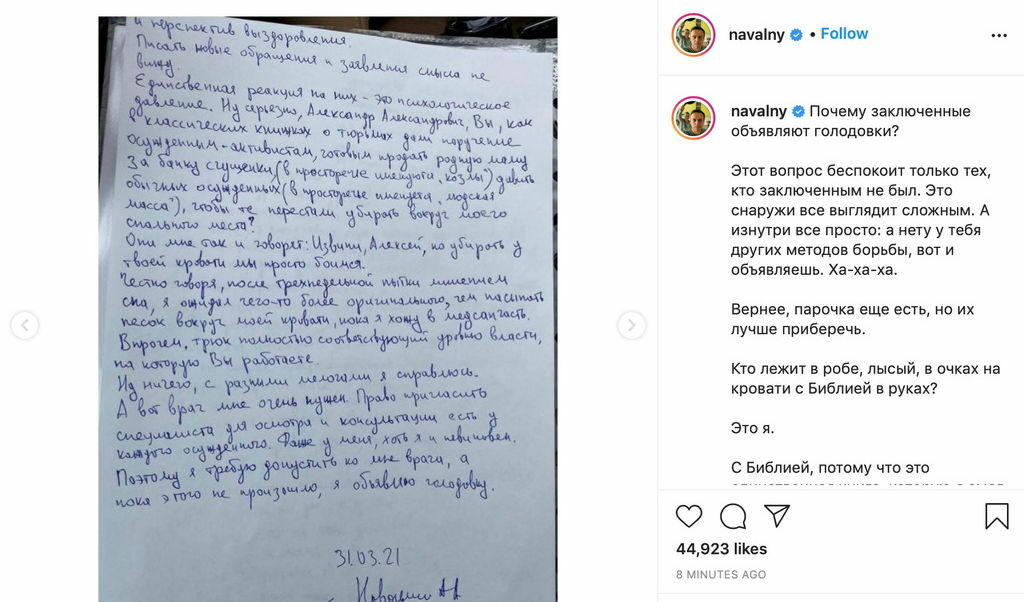 и перспектив выздоровления.
Писать новые обращения и заявления смысла не
вижу.
Единственная реакция на них - это психологическое
давление. Ну серьезно, Александр Александрович, Вы, как
в классических книжках о тюрьмах дали поручение
осужденным-активистам, готовым продать родную маму
за банку сгущенки, (в просторечье именуются "козлы") давить
обычных осужденных (в просторечье именуется "людская
масса"), чтобы те перестали убирать вокруг моего
спального места?
Они мне так и говорят: Извини, Алексей, но убирать у
твоей кровати мы просто боимся.
Честно говоря, после трехнедельной пытки лишением
сна, я ожидал чего-то более оригинального, чем насыпать
песок вокруг моей кровати, пока я хожу в медсанчасть.
Впрочем, трюк полностью соответствующий уровню власти,
на которую Вы работаете.
Ну ничего, с разными мелочами я справлюсь.
А вот врач мне очень нужен. Право пригласить
специалиста для осмотра и консультации есть у
каждого осужденного. Даже у меня, хоть я и невиновен.
Поэтому я требую допустить ко мне врача, а
пока этого не произошло, я объявляю голодовку.
31.03.21
Навальный А.А.
navalny • Follow
navalny Почему заключенные
объявляют голодовки?
Этот вопрос беспокоит только тех,
кто заключенным не был. Это
снаружи все выглядит сложным. А
изнутри все просто: а нету у тебя
других методов борьбы, вот и
объявляешь. Ха-ха-ха.
Вернее, парочка еще есть, но их
лучше приберечь.
Кто лежит в робе, лысый, в очках на
кровати с Библией в руках?
Это я.
С Библией, потому что это
44,923 likes
8 MINUTES AGO